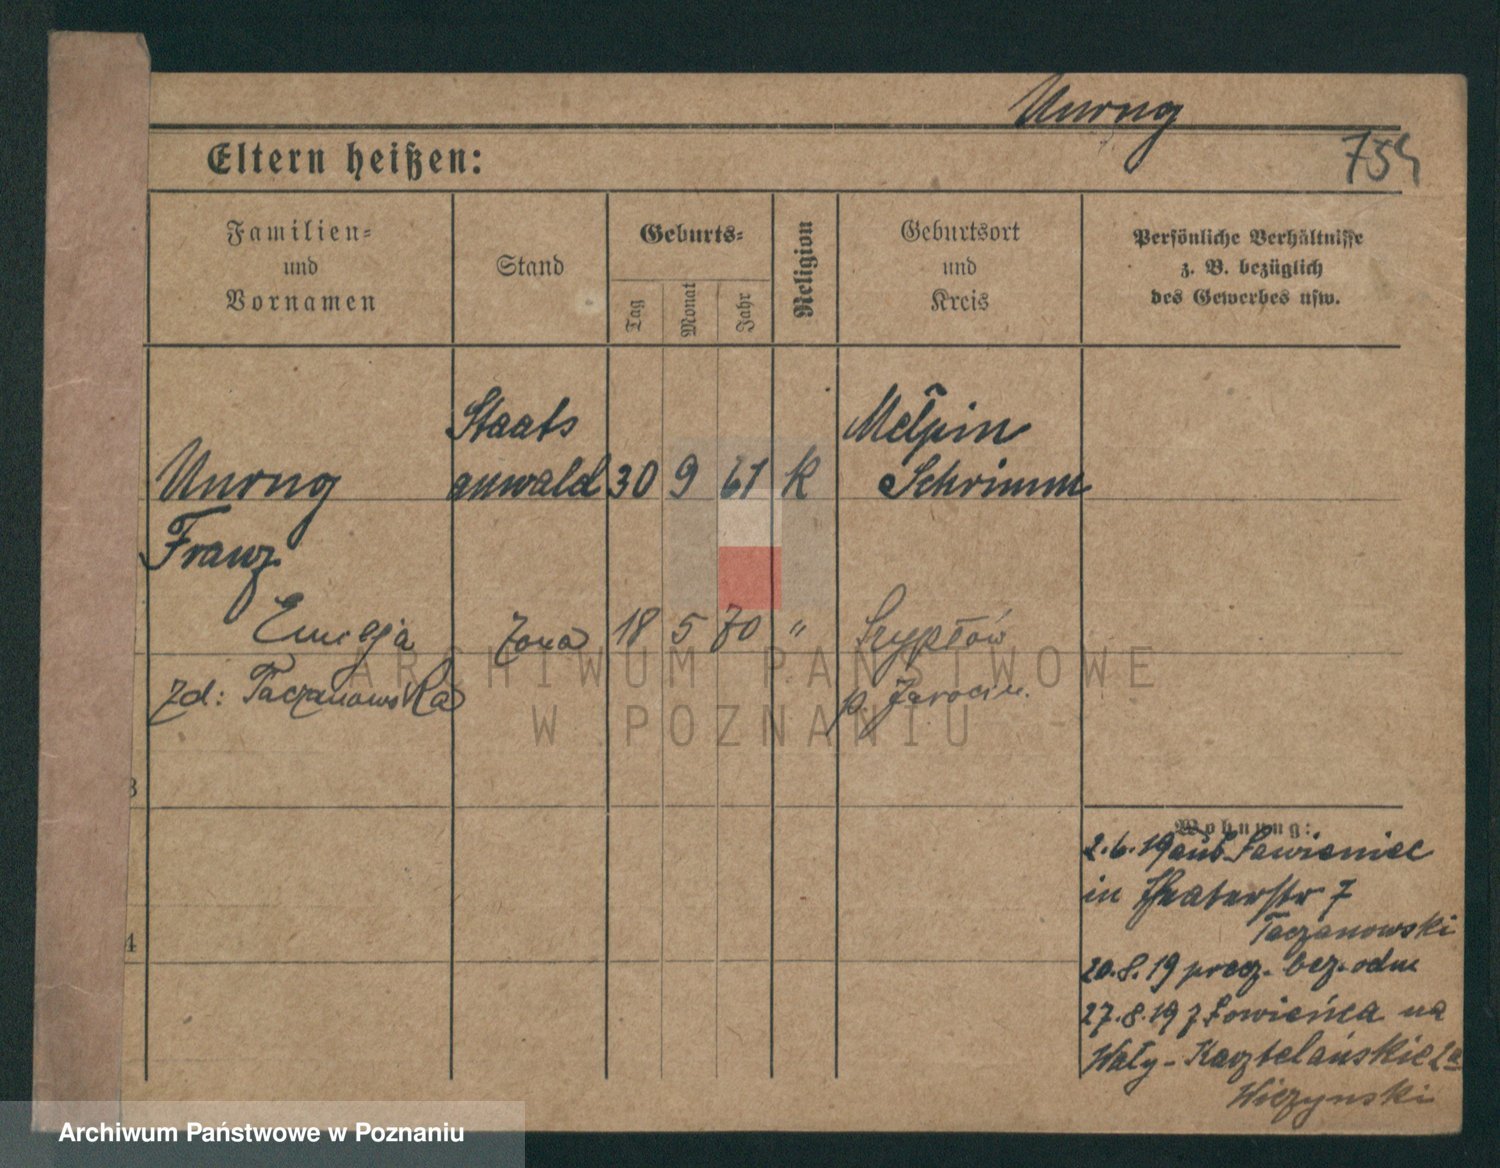 Unrug
754
Eltern heißen:
Familien-
und
Vornamen
Stand
Geburts-
Tag
Monat
Jahr
Religion
Geburtsort
und
Kreis
Persönliche Verhältnisse
z. B. bezüglich
des Gewerbes usw.
Staats
Mełpin
Unrug anwald 30 9 61 k Schrimm
Franz
Emilja żona 18 5 70 " Szypłów
zd: Taczanowska p. Jarocin.
3
4
Wohnung:
2.6.19 aus Lowieniec
in Theaterstr 7
Taczanowski
20.8.19 bez. odm
27.8.19 z Łowieńca na
Wały-Kasztelańskie 2a
Wiczynski
ARCHIWUM PAŃSTWOWE
W POZNANIU
Archiwum Państwowe w Poznaniu